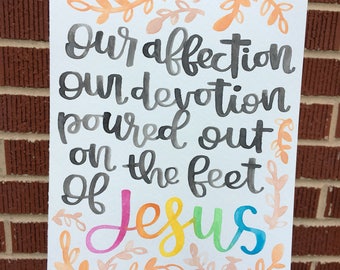 our affection
our devotion
poured out
on the feet
of Jesus